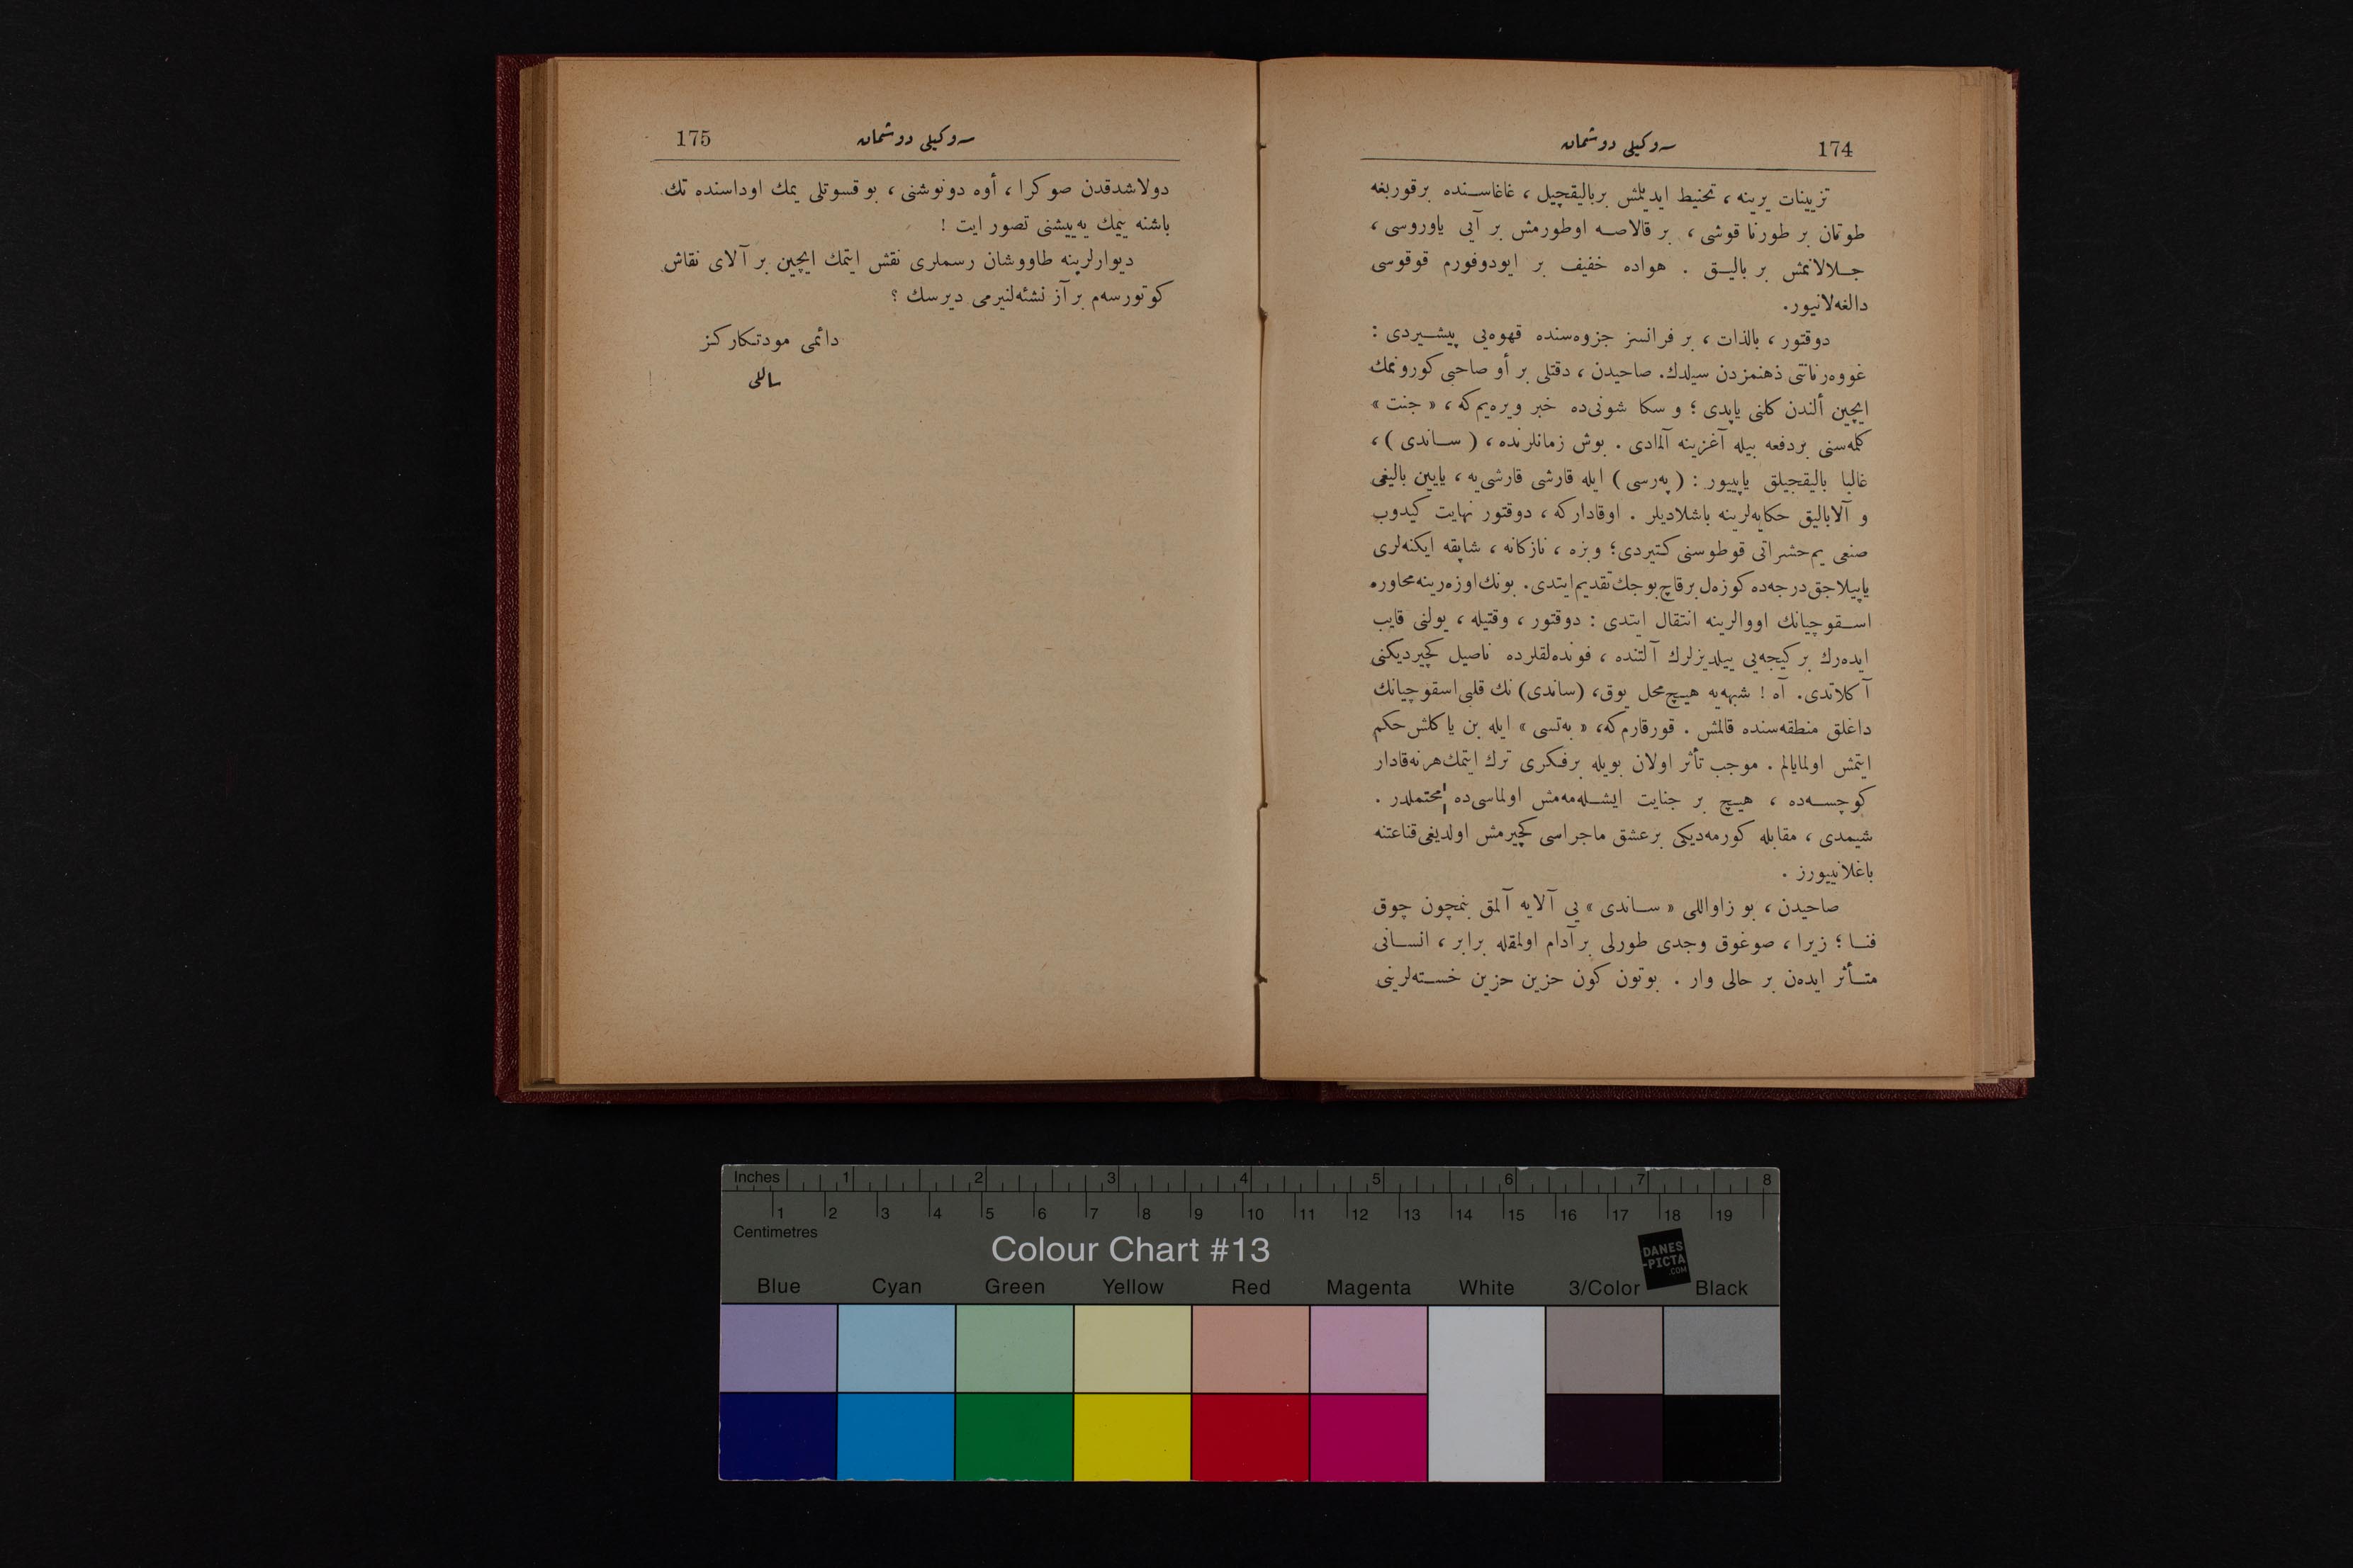 174
سه‌وكیلی دوشمان
تزيينات يرينه ، تحنيط ايديلمش بر باليقچيل ، غاغاسنده بر قوربغه
طوتمان بر طورنا قوشی ، بر قالاصه اوطورمش بر آيی ياوروسی ،
جلالانمش بر باليق . هواده خفيف بر ايودوفورم قوقوسی
دالغه‌لانيور.
دوقتور ، بالذات ، بر فرانسز جزوه‌سنده قهوه‌يی پيشيردی :
غووه‌رنانتی ذهنمزدن سيلدك. صاحيدن ، دقتلی بر أو صاحبی كورونمك
ايچين ألندن كلنی ياپدی ؛ و سكا شونی‌ده خبر ويره‌يم‌كه ، « جنت »
كله‌سنی بردفعه بيله آغزينه آلمادی . بوش زمانلرنده ، ( ساندی ) ،
غالبا باليقجيلق ياپييور : ( په‌رسی ) ايله قارشی قارشی‌يه ، يايين باليغی
و آلاباليق حكايه‌لرينه باشلاديلر . اوقاداركه ، دوقتور نهايت كيدوب
صنعی يم‌حشراتی قوطوسنی كتيردی؛ وبزه ، نازكانه ، شاپقه ايكنه‌لری
ياپيلاجق درجه‌ده كوزه‌ل برقاچ بوجك تقديم ايتدی. بونك اوزه‌رينه محاوره
اسقوچيانك اووالرينه انتقال ايتدی : دوقتور ، وقتيله ، يولنی قايب
ايده‌رك بر كيجه‌يی ييلديزلرك آلتنده ، فونده‌لقلرده ناصيل كچيرديكنی
آكلاتدی. آه ! شبهه‌يه هيچ محل يوق، (ساندی) نك قلبی اسقوچيانك
داغلق منطقه‌سنده قالمش . قورقارم‌كه، « به‌تسی » ايله بن ياكلش حكم
ايتمش اولمايالم . موجب تأثر اولان بويله برفكری ترك ايتمك هرنه‌قادار
كوچسه‌ده ، هيچ بر جنايت ايشله‌مه‌مش اولماسی‌ده محتملدر .
شيمدی ، مقابله كورمه‌ديكی برعشق ماجراسی كچيرمش اولديغی قناعتنه
باغلانييورز .
صاحيدن ، بو زاواللی « ساندی » يی آلايه آلمق بنمچون چوق
فنا ؛ زيرا ، صوغوق وجدی طورلی برآدام اولمقله برابر ، انسانی
متأثر ايده‌ن بر حالی وار . بوتون كون حزين حزين خسته‌لرينی
175
سه‌وكیلی دوشمان
دولاشدقدن صوكرا ، أوه دونوشنی ، بو قسوتلی يمك اوداسنده تك
باشنه ييمك يه‌ييشنی تصور ايت !
ديوارلرينه طاووشان رسملری نقش ايتمك ايچين بر آلای نقاش
كوتورسه‌م بر آز نشئه‌لنيرمی ديرسك ؟
دائمی مودتكاركز
ساللی
Inches 1 2 3 4 5 6 7 8
1 2 3 4 5 6 7 8 9 10 11 12 13 14 15 16 17 18 19
Centimetres
Colour Chart #13
DANES
-PICTA
.COM
Blue Cyan Green Yellow Red Magenta White 3/Color Black